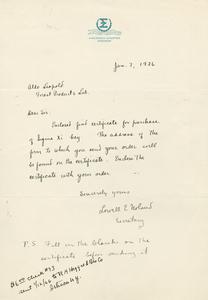 Jan. 7, 1926
Aldo Leopold
Forest Products Lab.
Dear Sir:
Enclosed find certificate for purchase
of Sigma Xi key. The address of the
firm to which you send your order will
be found on the certificate. Enclose the
certificate with your order.
Sincerely yours
Lowell E. Noland
Secretary
P.S. Fill in the blanks on the
certificate before sending it